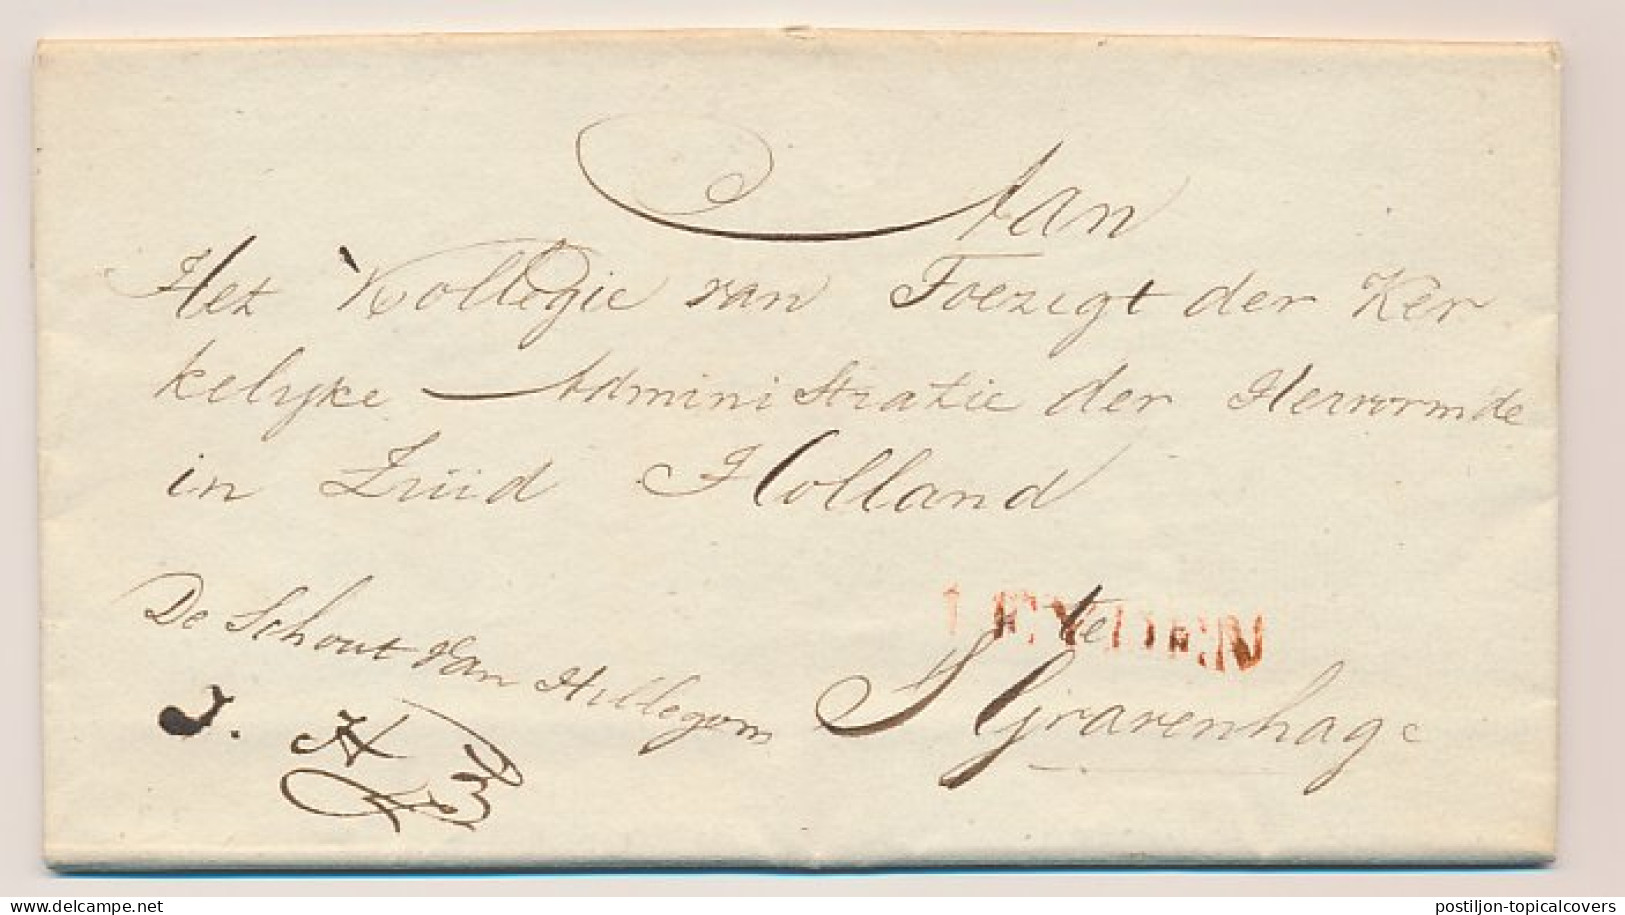 Aan
Het Kollegie van Toezigt der Ker
kelyke Administratie der Hervormde
in Züid Holland
LEYDEN
te
S Gravenhage
De Schout van Hillegom
J. H
delcampe.net
postiljon-topicalcovers